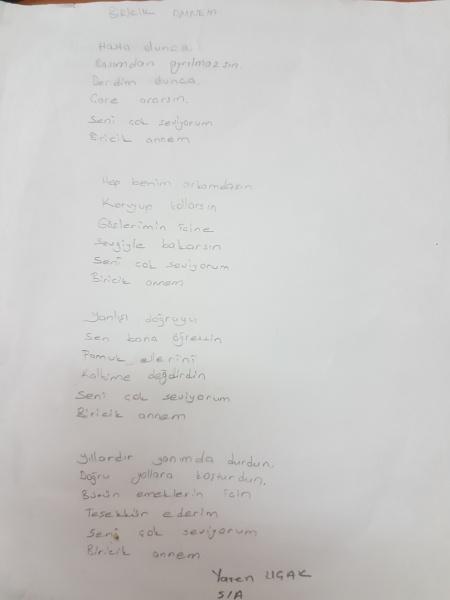 BİRİCİK ANNEM
Hasta olunca
Başımdan ayrılmazsın.
Derdim olunca.
Çare ararsın.
Seni çok seviyorum
Biricik annem
Hep benim arkamdasın
Koruyup kollarsın
Gözlerimin içine
Sevgiyle bakarsın
Seni çok seviyorum
Biricik annem
Yanlışı doğruyu
Sen bana öğrettin
Pamuk ellerini
Kalbime değdirdin
Seni çok seviyorum
Biricik annem
Yıllardır yanımda durdun.
Doğru yollara koşturdun.
Bütün emeklerin için
Teşekkür ederim
Seni çok seviyorum
Biricik annem
Yaren UÇAK
5/A